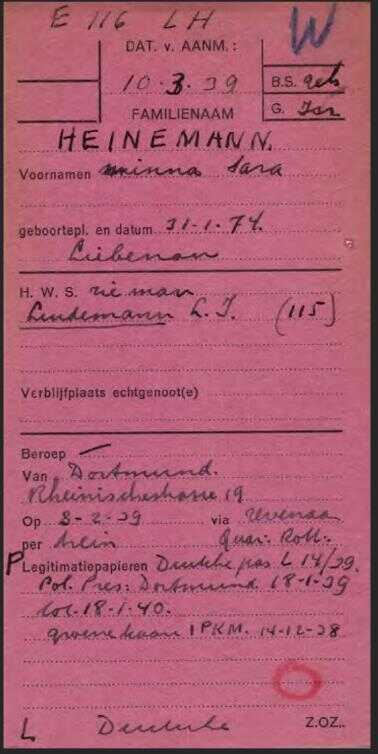 E 116 LH
W
DAT. v. AANM.:
10-3-39
B.S. geh
G. Isr
FAMILIENAAM
HEINEMANN.
Voornamen minna Sara
geboortepl. en datum 31-1-74.
Liebenau
H. W. S. zie man
Lindemann L. J. (115)
Verblijfplaats echtgenoot(e)
Beroep —
Van Dortmund.
Rheinischestrasse 19
Op 8-2-39 via Zevenaar
per trein Quar: Rott.
P Legitimatiepapieren Deutsche pas L 14/39.
Pol. Pres: Dortmund 18-1-39
tot 18-1-40.
groene kaart 1 PKM. 14-12-38
L Deutsche Z.OZ.